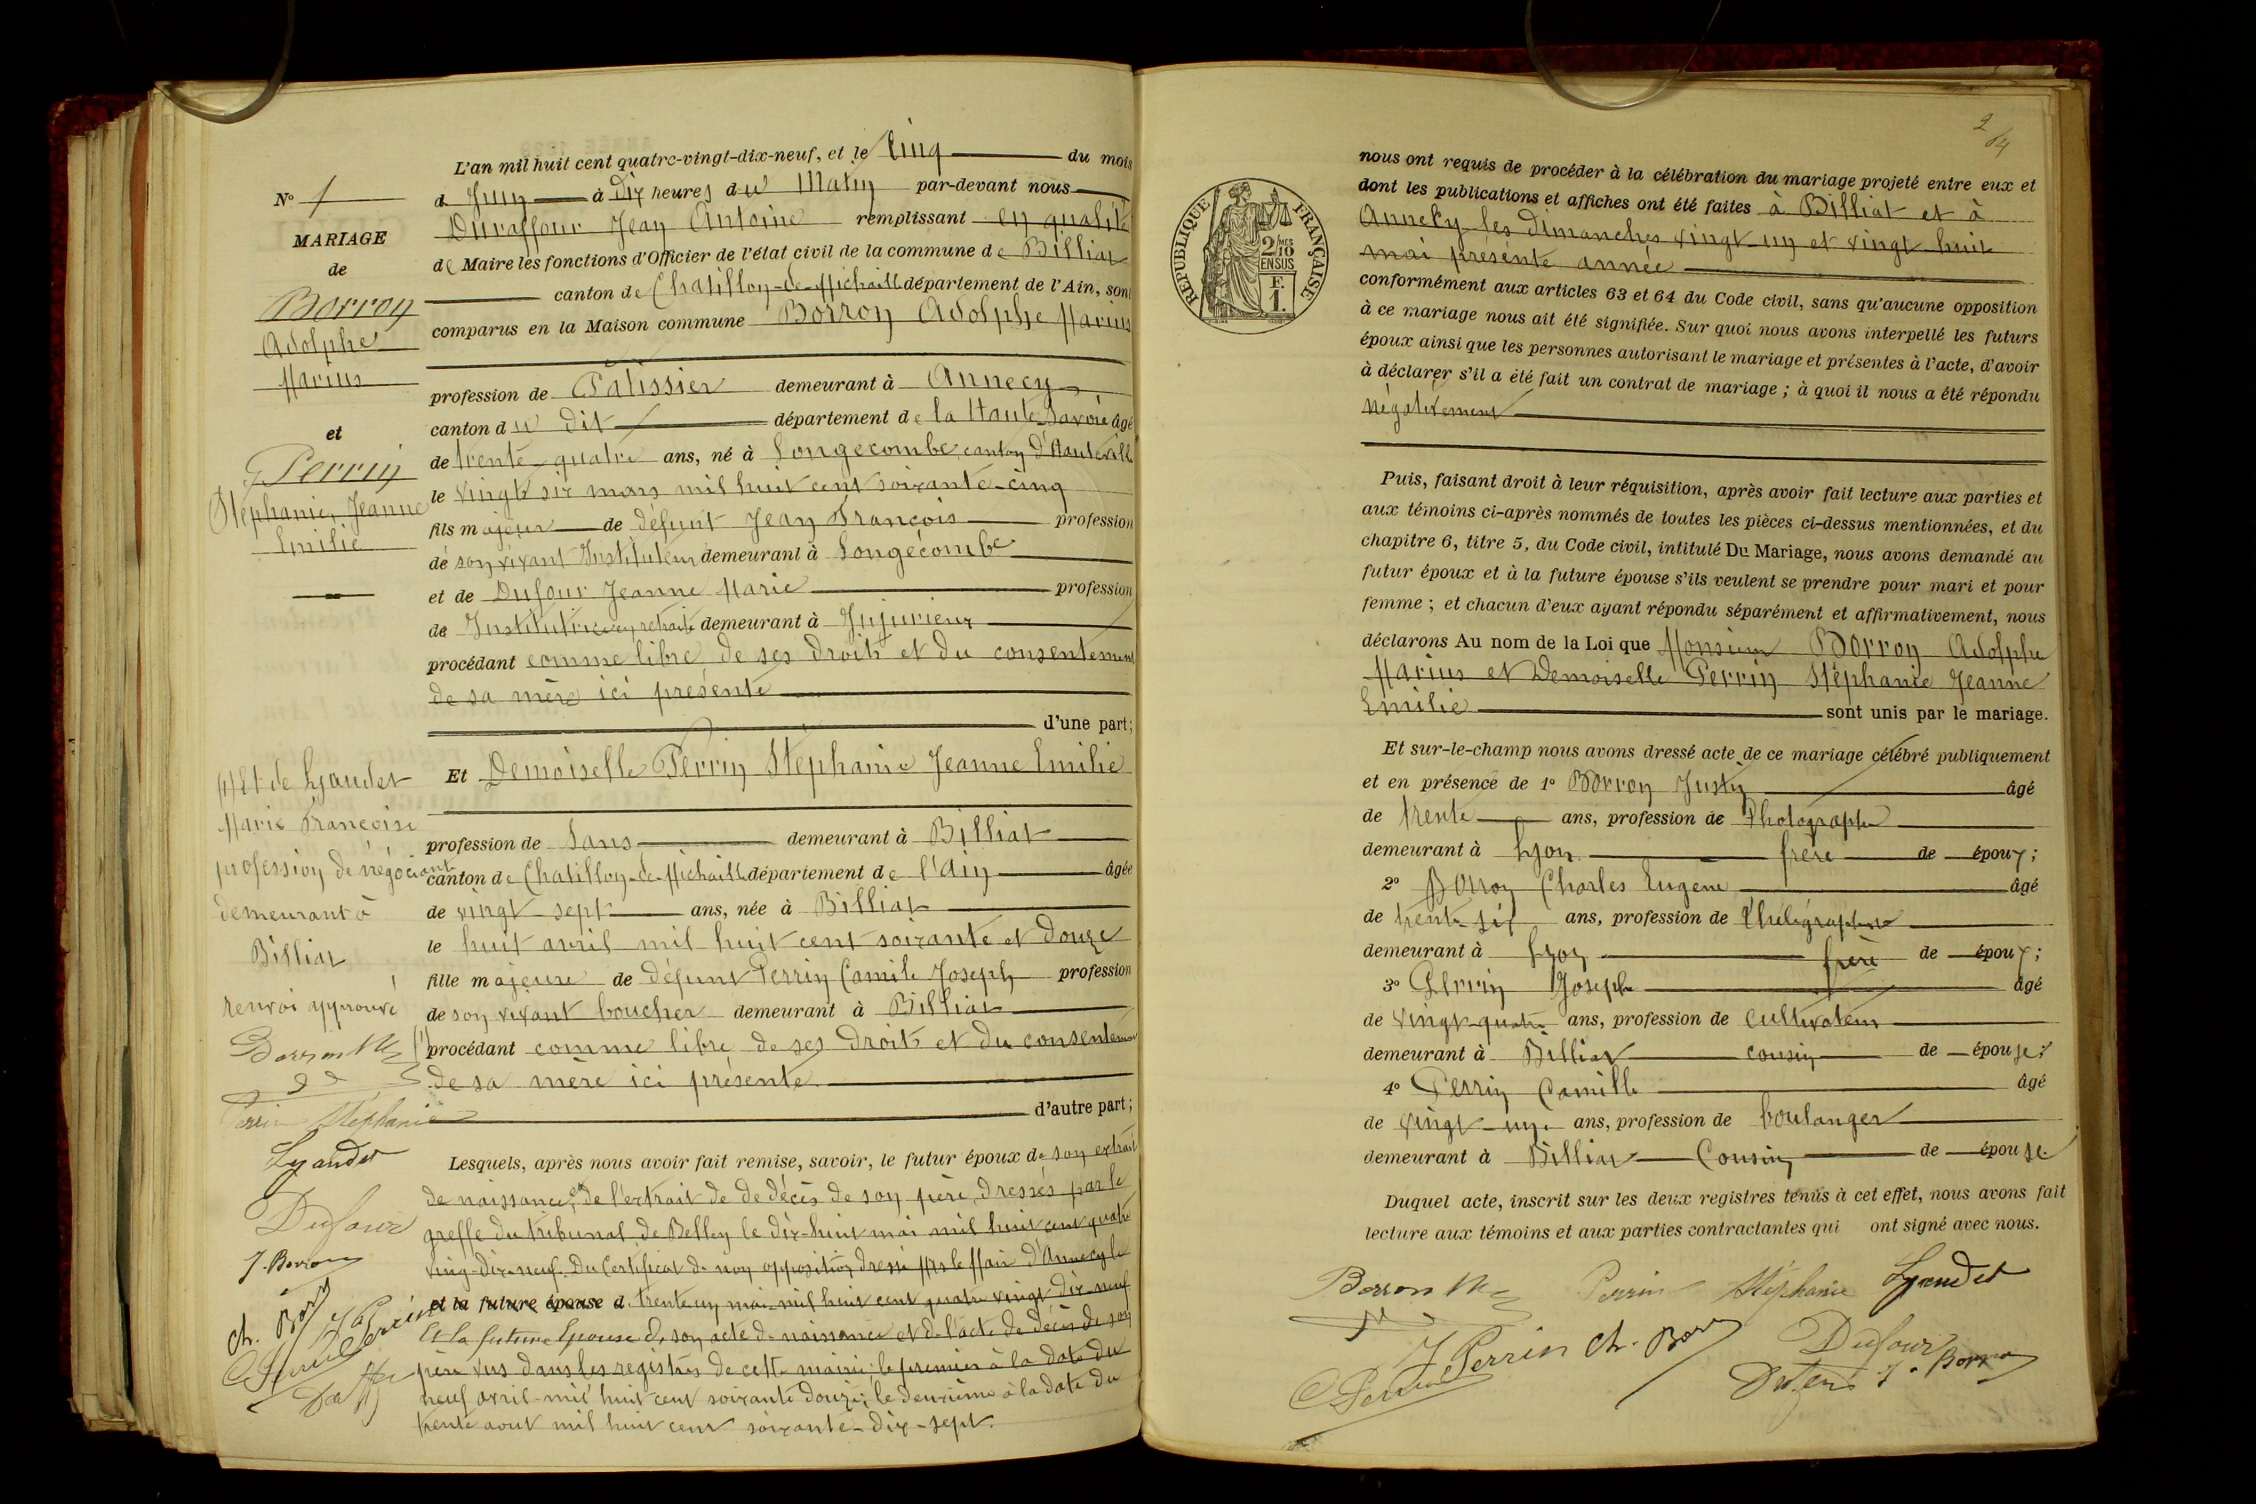 L'an mil huit cent quatre-vingt-dix-neuf, et le Cinq du mois
de Juin à Dix heures du Matin par-devant nous
Duraffour Jean Antoine remplissant en qualité
de Maire les fonctions d'Officier de l'état civil de la commune de Billiat
canton de Chatillon-de-Michaille département de l'Ain, sont
comparus en la Maison commune Borron Adolphe Marius
profession de Patissier demeurant à Annecy
canton du dit département de la Haute Savoie âgé
de trente-quatre ans, né à Longecombe canton d'Hauteville
le vingt six mars mil huit cent soixante-cinq
fils majeur de défunt Jean François profession
de son vivant Instituteur demeurant à Longecombe
et de Dufour Jeanne Marie profession
de Institutrice en retraite demeurant à Jujurieux
procédant comme libre de ses droits et du consentement
de sa mère ici présente
d'une part;
Et Demoiselle Perrin Stéphanie Jeanne Emilie
profession de Sans demeurant à Billiat
canton de Chatillon-de-Michaille département de l'Ain âgée
de vingt-sept ans, née à Billiat
le huit avril mil huit cent soixante et douze
fille majeure de défunt Perrin Camile Joseph profession
de son vivant boucher demeurant à Billiat
(1) procédant comme libre de ses droits et du consentement
de sa mère ici présente
d'autre part;
Lesquels, après nous avoir fait remise, savoir, le futur époux de son extrait
de naissance, et de l'extrait de de décès de son père, dressés par le
greffe du tribunal de Belley le dix-huit mai mil huit cent quatre
ving-dix-neuf. Du Certificat de non opposition dressé par le Maire d'Annecy le
et la future épouse d trente un mai mil huit cent quatre vingt dix-neuf
Et la future Epouse de son acte de naissance et de l'acte de décès de son
père vus dans les registres de cette mairie; le premier à la date du
neuf avril mil huit cent soixante douze; le deuxième à la date du
trente aout mil huit cent soixante-dix-sept.
N° 1
MARIAGE
de
Borron
Adolphe
Marius
et
Perrin
Stéphanie, Jeanne
Emilie
(1) Et de Lyaudet
Marie Françoise
profession de négociant
demeurant à
Billiat
renvoi approuvé
Borron M
Perrin Stéphanie
Lyaudet
Dufour
J. Borron
Ch. Borron
J. Perrin
C Perrin
2
64
RÉPUBLIQUE FRANÇAISE
2/10 MES
EN SUS
F.
1.
nous ont requis de procéder à la célébration du mariage projeté entre eux et
dont les publications et affiches ont été faites à Billiat et à
Annecy les dimanches vingt-un et vingt huit
mai présente année
conformément aux articles 63 et 64 du Code civil, sans qu'aucune opposition
à ce mariage nous ait été signifiée. Sur quoi nous avons interpellé les futurs
époux ainsi que les personnes autorisant le mariage et présentes à l'acte, d'avoir
à déclarer s'il a été fait un contrat de mariage; à quoi il nous a été répondu
négativement
Puis, faisant droit à leur réquisition, après avoir fait lecture aux parties et
aux témoins ci-après nommés de toutes les pièces ci-dessus mentionnées, et du
chapitre 6, titre 5, du Code civil, intitulé Du Mariage, nous avons demandé au
futur époux et à la future épouse s'ils veulent se prendre pour mari et pour
femme; et chacun d'eux ayant répondu séparément et affirmativement, nous
déclarons Au nom de la Loi que Monsieur Borron Adolphe
Marius et Demoiselle Perrin Stéphanie Jeanne
Emilie sont unis par le mariage.
Et sur-le-champ nous avons dressé acte de ce mariage célébré publiquement
et en présence de 1° Borron Justin âgé
de trente ans, profession de Photographe
demeurant à Lyon frère de époux;
2° Borron Charles Eugene âgé
de trente-six ans, profession de
demeurant à Lyon frère de époux;
3° Perrin Joseph âgé
de vingt-quatre ans, profession de cultivateur
demeurant à Billiat cousin de épouse;
4° Perrin Camille âgé
de vingt-un ans, profession de boulanger
demeurant à Billiat Cousin de épouse.
Duquel acte, inscrit sur les deux registres tenus à cet effet, nous avons fait
lecture aux témoins et aux parties contractantes qui ont signé avec nous.
Borron M Perrin Stéphanie Lyaudet
J Perrin Ch. Borron Dufour
C Perrin J. Borron